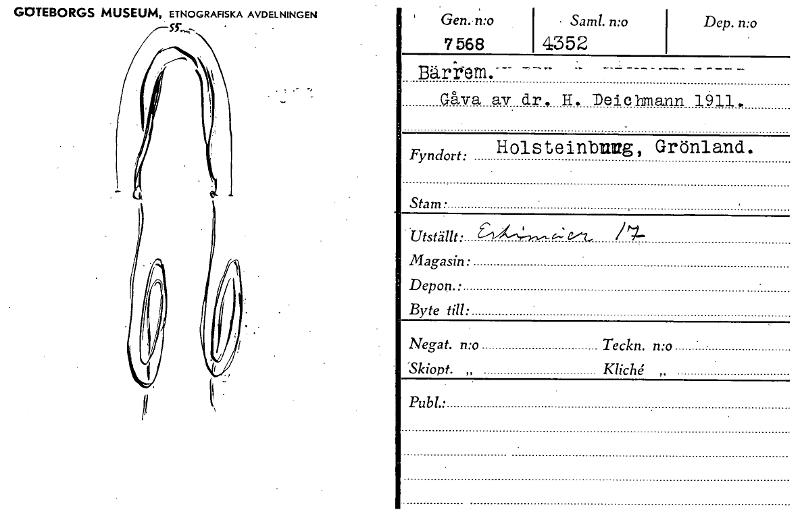 GÖTEBORGS MUSEUM, ETNOGRAFISKA AVDELNINGEN
55
Gen. n:o
Saml. n:o
Dep. n:o
7568
4352
Bärrem.
Gåva av dr. H. Deichmann 1911.
Fyndort: Holsteinburg, Grönland.
Stam:
Utställt: Eskimåer 17
Magasin:
Depon.:
Byte till:
Negat. n:o
Teckn. n:o
Skiopt. „
Kliché „
Publ.: